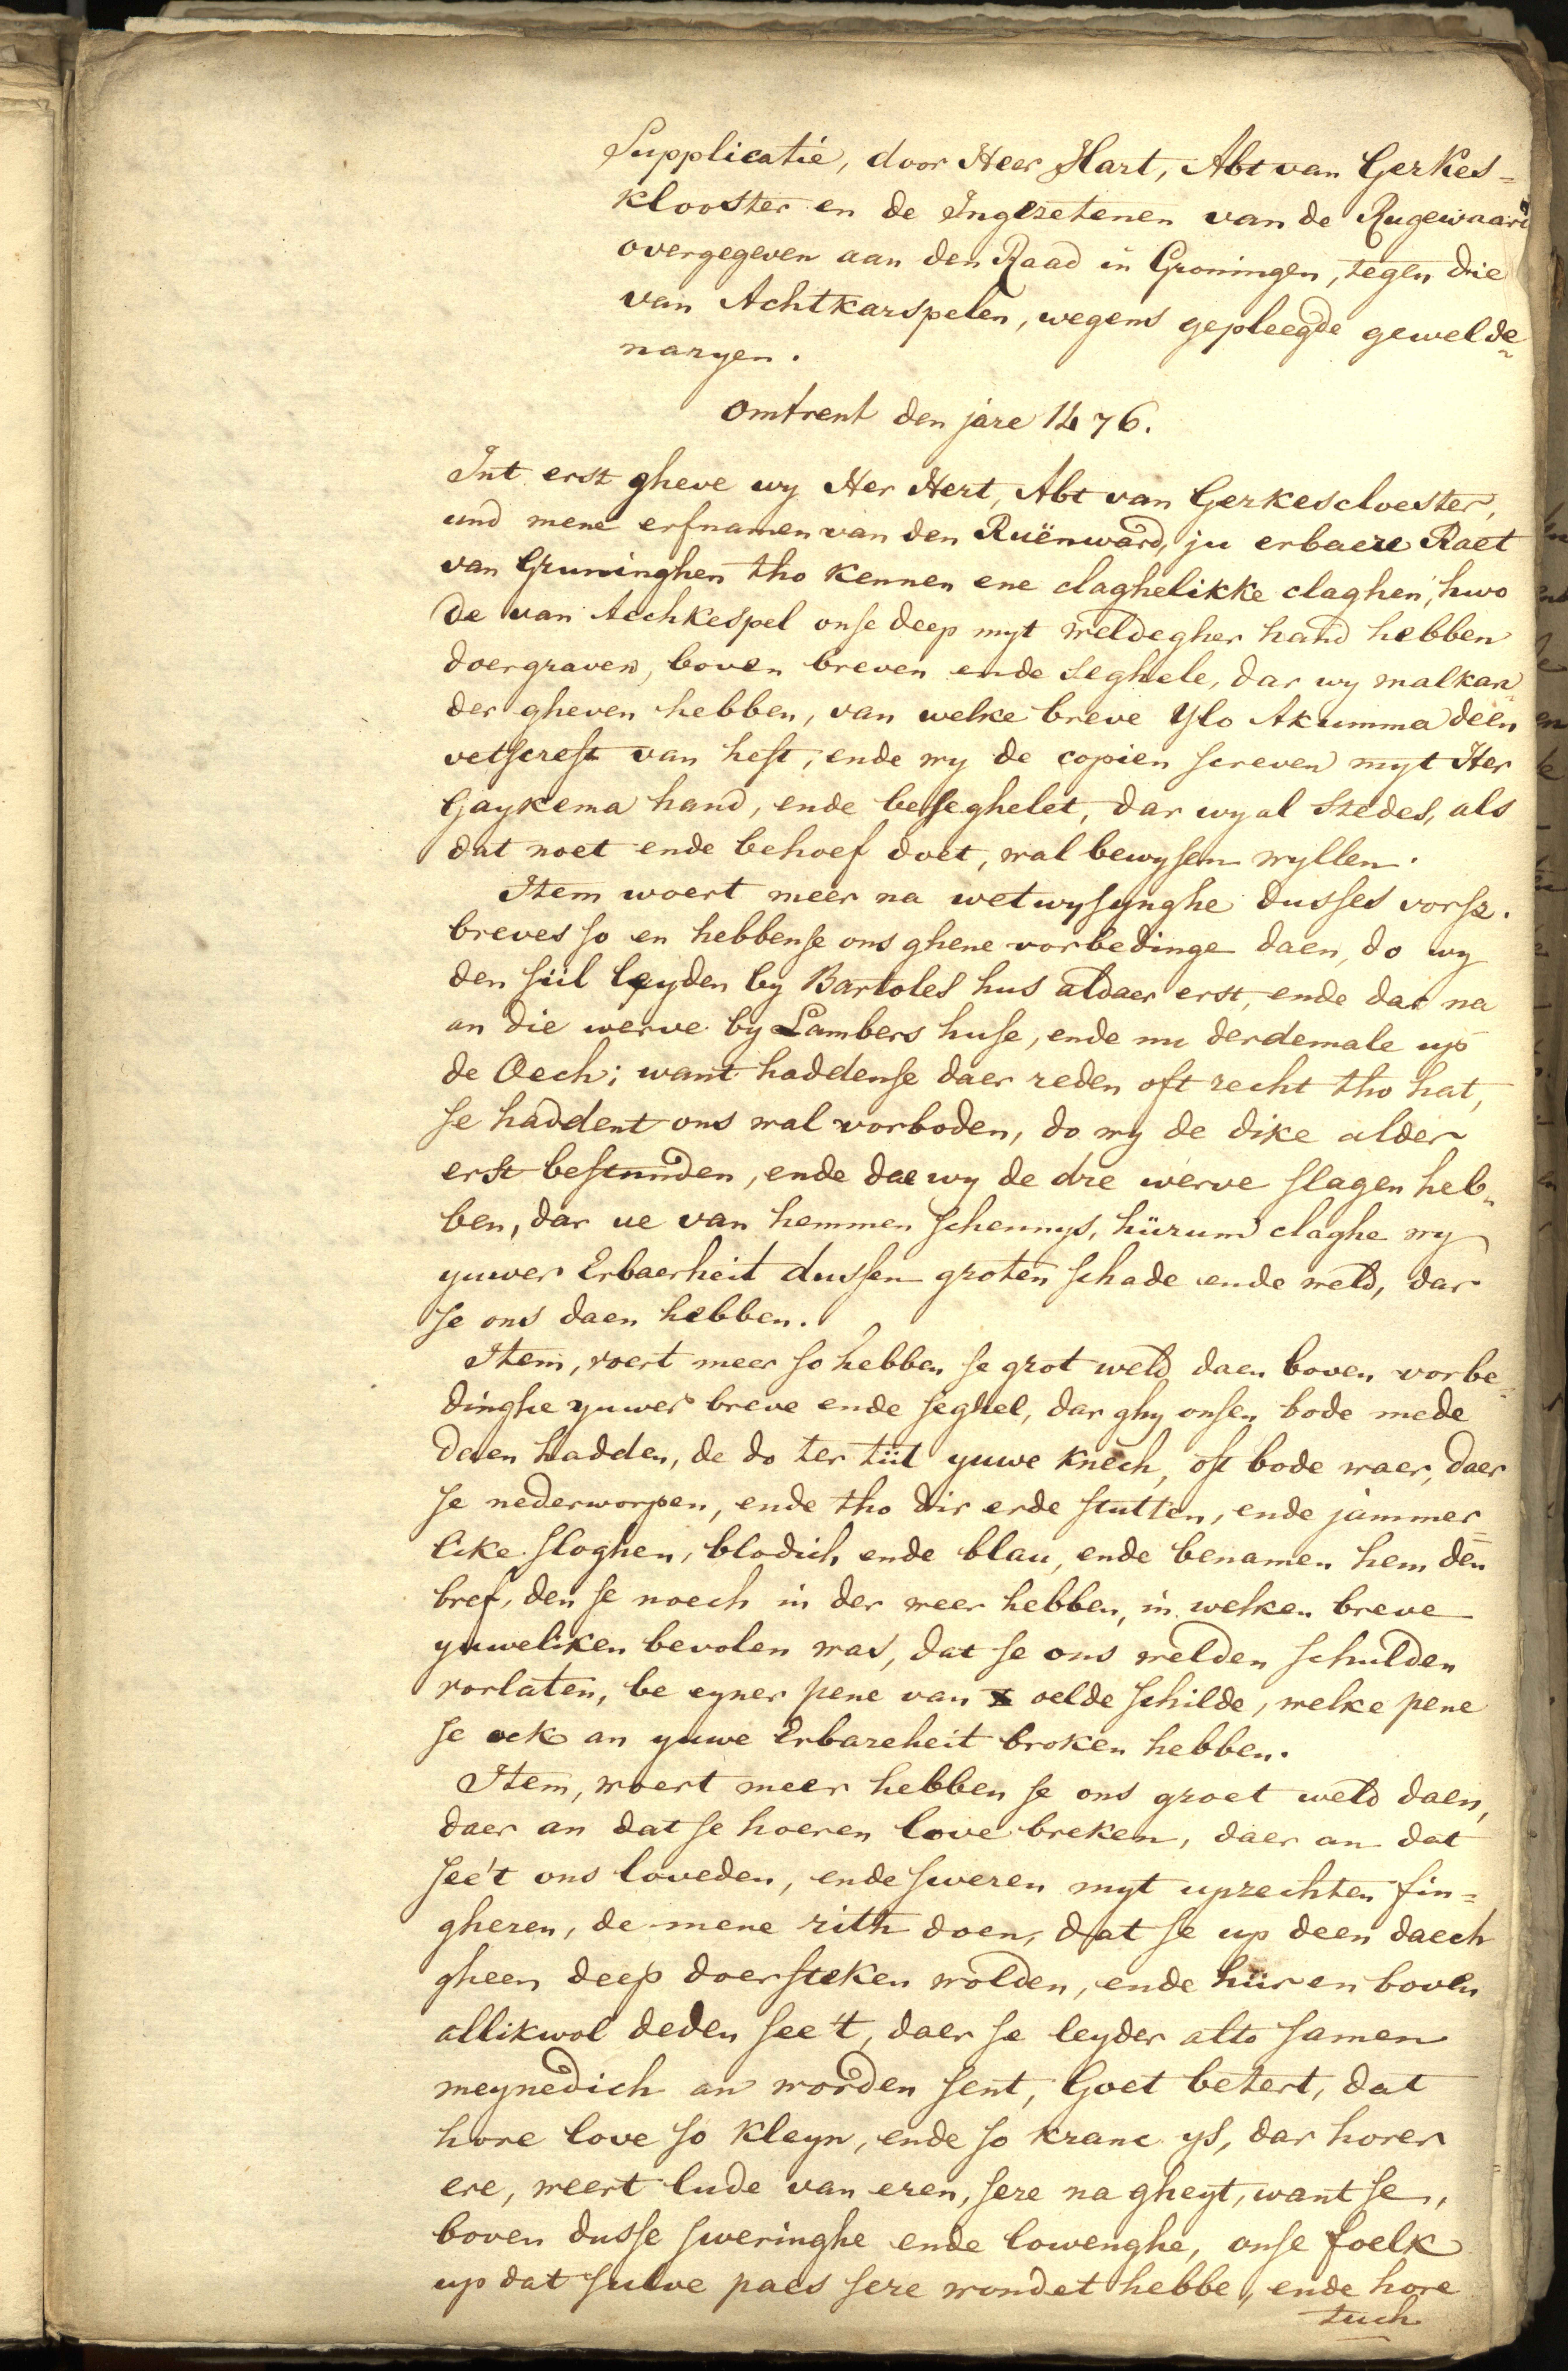 Supplicatie, door Heer Hart, Abt van Gerkes=
klooster en de Ingezetenen van de Rugewaard
overgegeven aan den Raad in Groningen, tegen die
van Achtkarspelen, wegens gepleegde gewelde-
naryen.
omtrent den jare 1476.
Int erst gheve wy Her Hert, Abt van Gerkescloester,
und mene erfnamen van den Ruënward, ju erbaere Raet
van Gruninghen tho kennen ene claghelikke claghen, hwo
de van Aechkespel onse deep myt weldegher hand hebben
doergraven, boven breven ende seghele, dar wy malkan-
der gheven hebben, van welke breve Ylo Akumma deen
vetscreft van heft, ende wy de copien screven myt Her
Gaykema hand, ende beseghelet, dar wy al stedes, als
dat noet ende behoef doet, wal bewysen wyllen.
Item woert meer na wetwysynghe dusses vorsz.
breves so en hebbense ons ghene vorbedinge daen, do wy
den siil leyden by Bartoles hus aldaer erst, ende dar na
an die werve by Lambers huse, ende nu derdemale up
de Oech; want haddense daer reden oft recht tho hat,
se haddent ons wal vorboden, do wy de dike alder
erst bestunden, ende dae wy de dre werve slagen heb-
ben, dar ue van hemmen schennys, hiirum claghe wy
yuwer Erbaerheit dussen groten schade ende weld, dar
se ons daen hebben.
Item, voert meer so hebben se grot weld daen boven vorbe-
dinghe yuwer breve ende seghel, dar ghy onsen bode mede
daen hadden, de do ter tiit yuwe knech, oft bode waer, daer
se nederworpen, ende tho dir erde stutten, ende jammer=
like sloghen, blodich ende blau, ende benamen hem den
bref, den se noech in der weer hebben, in welken breve
yuweliken bevolen was, dat se ons welden schulden
vorlaten, be eyner pene van x oelde schilde, welke pene
se oek an yuwe Erbareheit broken hebben.
Item, woert meer hebben se ons groet weld daen,
daer an dat se hoeren love breken, daer an dat
see't ons loveden, ende sweren myt uprechten fin=
gheren, de mene rith doen, dat se up deen daech
gheen deep doersteken wolden, ende hiir en boven
allikwol deden see't, daer se leyder alto samen
meynedich an worden sent, Goet betert, dat
hore love so kleyn, ende so kranc ys, dar horer
ere, weert lude van eren, sere na gheyt, want se,
boven dusse sweringhe ende lowenghe, onse foelk
up dat sulve paes sere wondet hebbe, ende hore
tuch